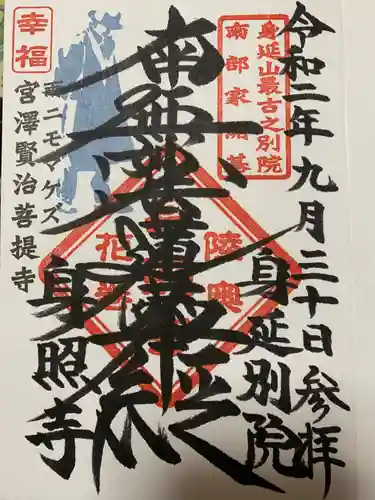 令和二年九月三十日参拝
身延山最古之別院
南部家開基
身延別院
南無妙法蓮華経
陸奥
花巻
身照寺
幸福
雨ニモマケズ
宮澤賢治菩提寺